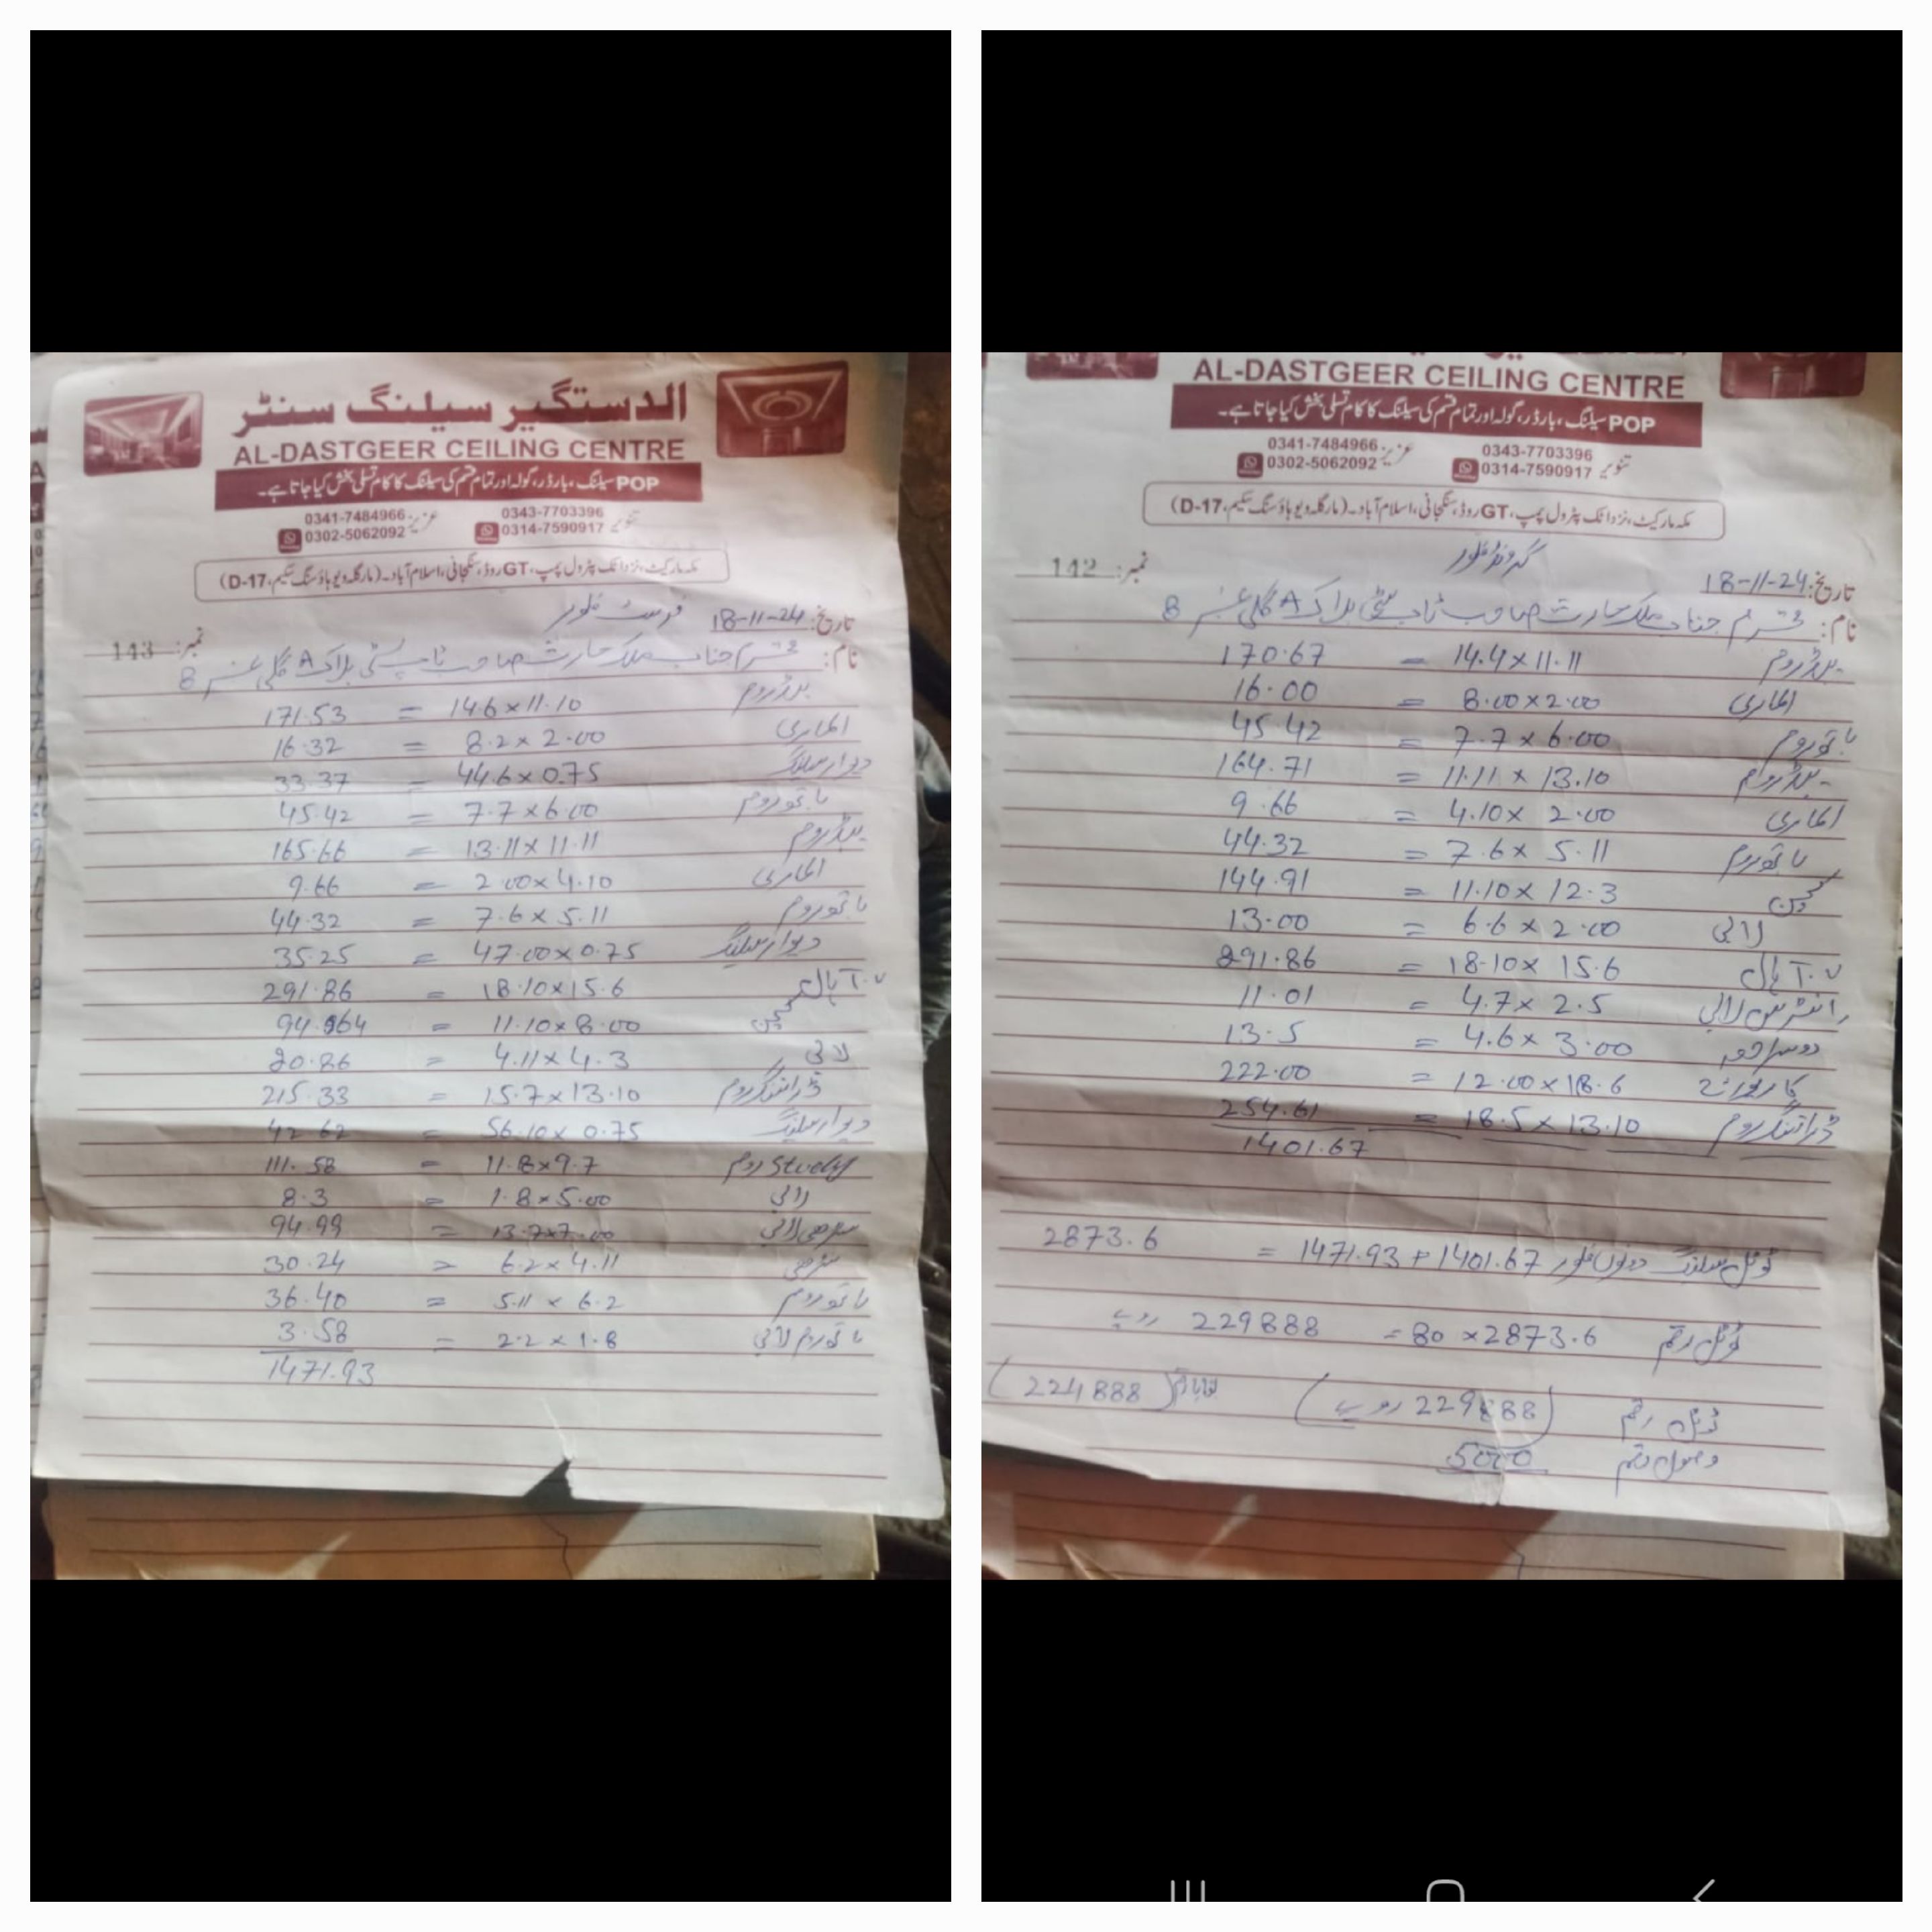 الدستگیر سیلنگ سنٹر
AL-DASTGEER CEILING CENTRE
POP سیلنگ، بارڈر، گولہ اور تمام قسم کی سیلنگ کا کام تسلی بخش کیا جاتا ہے۔
تنویر 0343-7703396 عزیز 0341-7484966
0314-7590917 0302-5062092
مکہ مارکیٹ، نزد اٹک پٹرول پمپ، GT روڈ، سنگجانی، اسلام آباد۔ (مارگلہ ویو ہاؤسنگ سکیم، D-17)
تاریخ: 18-11-24 فرسٹ فلور نمبر: 143
نام: محترم جناب ملک حارث صاحب ٹاپ سٹی بلاک A گلی نمبر 8
بیڈ روم 14.6 x 11.10 = 171.53
الماری 8.2 x 2.00 = 16.32
دیوار سیلنگ 44.6 x 0.75 = 33.37
باتھ روم 7.7 x 6.00 = 45.42
بیڈ روم 13.11 x 11.11 = 165.66
الماری 2.00 x 4.10 = 9.66
باتھ روم 7.6 x 5.11 = 44.32
دیوار سیلنگ 47.00 x 0.75 = 35.25
T.V ہال 18.10 x 15.6 = 291.86
کچن 11.10 x 8.00 = 94.64
لابی 4.11 x 4.3 = 20.86
ڈرائنگ روم 15.7 x 13.10 = 215.33
دیوار سیلنگ 56.10 x 0.75 = 42.62
Study روم 11.8 x 9.7 = 111.58
لابی 1.8 x 5.00 = 8.3
سیڑھی لابی 13.7 x 7.00 = 94.99
سیڑھی 6.2 x 4.11 = 30.24
باتھ روم 5.11 x 6.2 = 36.40
باتھ روم لابی 2.2 x 1.8 = 3.58
1471.93
AL-DASTGEER CEILING CENTRE
POP سیلنگ، بارڈر، گولہ اور تمام قسم کی سیلنگ کا کام تسلی بخش کیا جاتا ہے۔
تنویر 0343-7703396 عزیز 0341-7484966
0314-7590917 0302-5062092
مکہ مارکیٹ، نزد اٹک پٹرول پمپ، GT روڈ، سنگجانی، اسلام آباد۔ (مارگلہ ویو ہاؤسنگ سکیم، D-17)
تاریخ: 18-11-24 گرونڈ فلور نمبر: 142
نام: محترم جناب ملک حارث صاحب ٹاپ سٹی بلاک A گلی نمبر 8
بیڈ روم 14.4 x 11.11 = 170.67
الماری 8.00 x 2.00 = 16.00
باتھ روم 7.7 x 6.00 = 45.42
بیڈ روم 11.11 x 13.10 = 164.71
الماری 4.10 x 2.00 = 9.66
باتھ روم 7.6 x 5.11 = 44.32
کچن 11.10 x 12.3 = 144.91
لابی 6.6 x 2.00 = 13.00
T.V ہال 18.10 x 15.6 = 291.86
انٹرنس لابی 4.7 x 2.5 = 11.01
دوسرا 4.6 x 3.00 = 13.5
کار پورچ 12.00 x 18.6 = 222.00
ڈرائنگ روم 18.5 x 13.10 = 254.61
1401.67
ٹوٹل سیلنگ دونوں فلور 1401.67 + 1471.93 = 2873.6
ٹوٹل رقم 2873.6 x 80 = 229888 روپے
ٹوٹل رقم (229888 روپے) (224888)
وصول رقم 5000